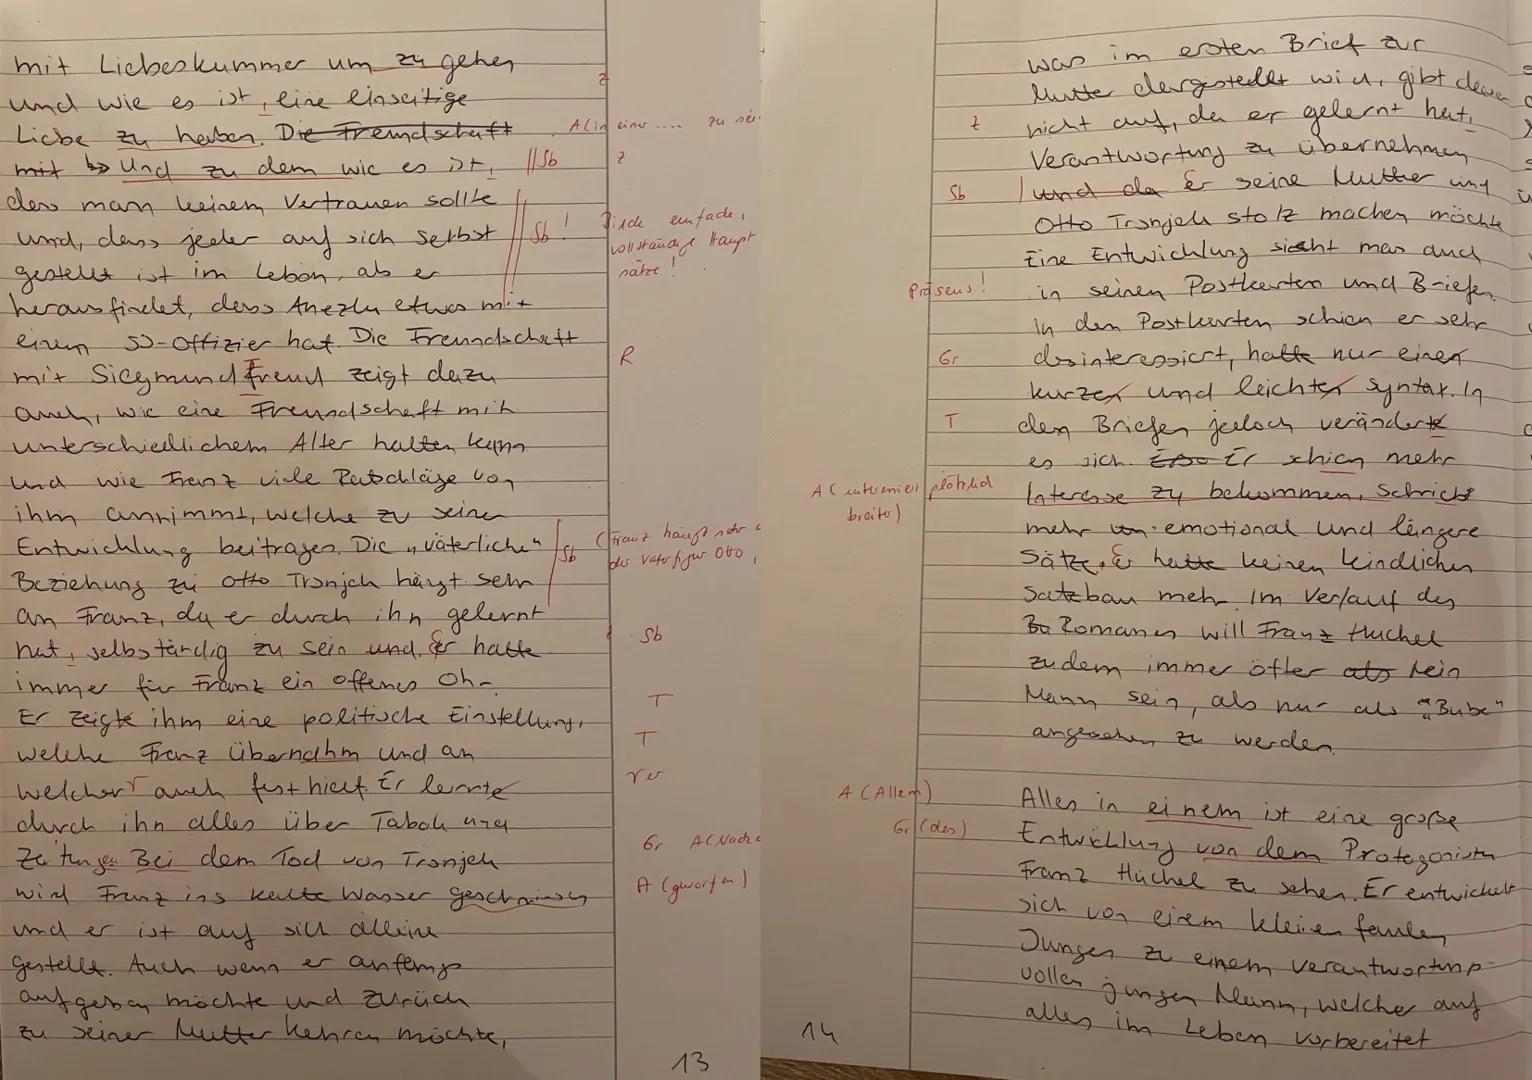 mit Liebeskummer um zu gehen
und wie es ist, eine einseitige
Liebe zu haben. Die Freundschaft
mit Und zu dem wie es ist,
dass man keinem Vertrauen sollte
und, dass jeder auf sich selbst
gestellt ist im Leben, als er
herausfindet, dass Anezka etwas mit
einem SS-Offizier hat. Die Freundschaft
mit Siegmund Freud zeigt dazu
auch, wie eine Freundschaft mit
unterschiedlichem Alter halten kann
und wie Franz viele Ratschläge von
ihm annimmt, welche zu seiner
Entwicklung beitragen. Die „väterliche"
Beziehung zu Otto Trsnjek hängt sehr
an Franz, da er durch ihn gelernt
hat, selbständig zu sein und. Er hatte
immer für Franz ein offenes Ohr
Er zeigte ihm eine politische Einstellung,
welche Franz übernahm und an
welcher auch fest hielt. Er lernte
durch ihn alles über Tabak und
Zeitungen Bei dem Tod von Trsnjek
wird Franz ins kalte Wasser geschmissen
und er ist auf sich alleine
gestellt. Auch wenn er anfangs
aufgeben möchte und zurück
zu seiner Mutter kehren möchte,
z
A (in einer .... zu sei
||Sb z
Sb! Bilde einfache,
vollständige Haupt
sätze!
R
Sb (Franz hängt sehr a
der Vaterfigur Otto,
Sb
T
T
Gr A (Nach
A (geworfen)
13
was im ersten Brief zur
Mutter dargestellt wird, gibt
nicht auf, da er gelernt hat,
Verantwortung zu übernehmen
und da Er seine Mutter und
Otto Trsnjek stolz machen möchte
Eine Entwicklung sieht man auch
in seinen Postkarten und Briefen.
In den Postkarten schien er sehr
desinteressiert, hatte nur einen
kurzen und leichten Syntax. In
den Briefen jedoch veränderte
es sich. Er schien mehr
Interesse zu bekommen, schrieb
mehr emotional und längere
Sätze. Er hatte keinen kindlichen
Satzbau mehr. Im Verlauf des
Romanes will Franz Huchel
zudem immer öfter als kein
Mann sein, als nur als „Bube"
angesehen zu werden.
Alles in einem ist eine große
Entwicklung von dem Protagonisten
Franz Huchel zu sehen. Er entwickelt
sich von einem kleinen faulen
Jungen zu einem verantwortungs-
vollen jungen Mann, welcher auf
alles im Leben vorbereitet
z
Sb
Präsens!
Gr
T
A ( plötzlich
breiter)
A (Allem)
Gr (des)
14